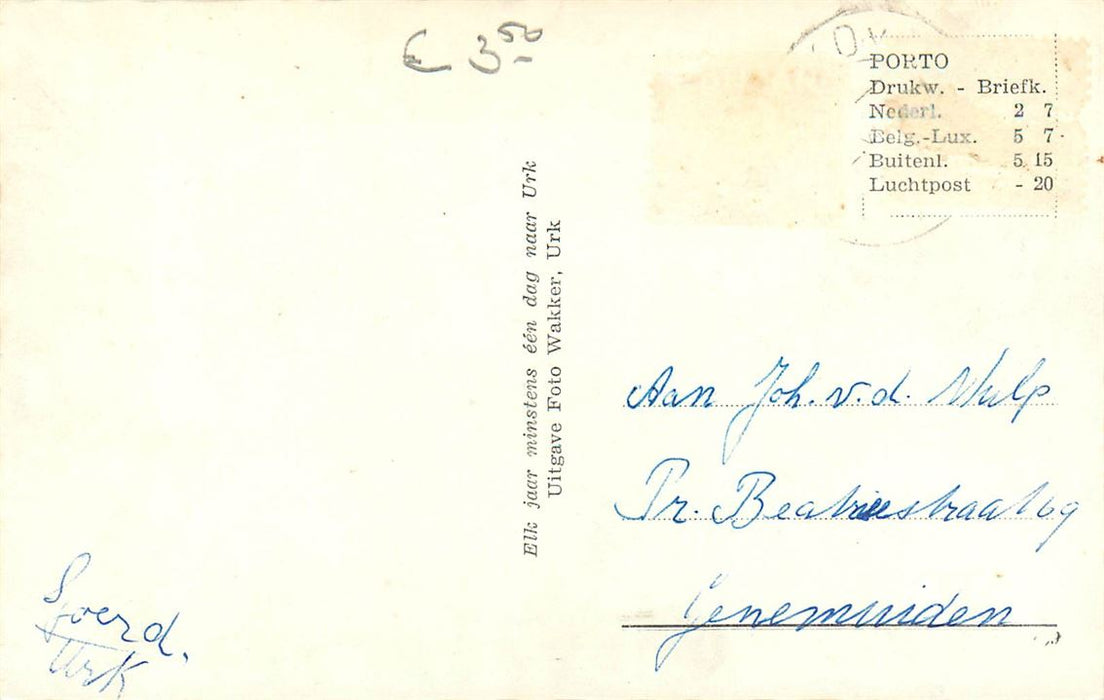 € 3,50
PORTO
Drukw. - Briefk.
Nederl. 2 7
Belg.-Lux. 5 7
Buitenl. 5 15
Luchtpost - 20
Elk jaar minstens één dag naar Urk
Uitgave Foto Wakker, Urk
Aan Joh. v.d. Wulp
Pr. Beatrixstraat 69
Genemuiden
Urk